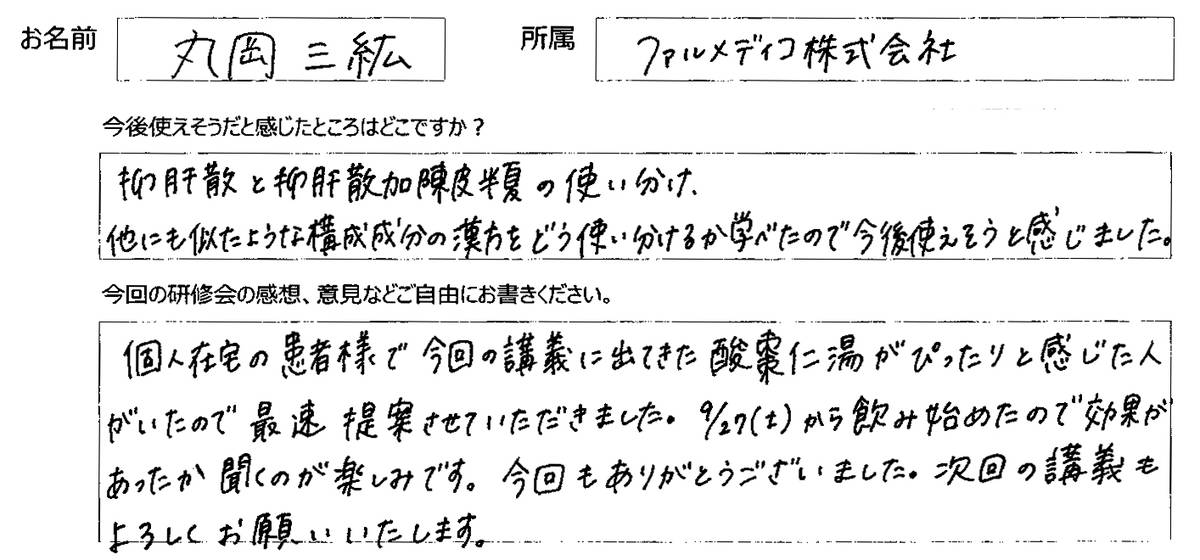 お名前 丸岡 三紘 所属 ファルメディコ株式会社
今後使えそうだと感じたところはどこですか？
抑肝散と抑肝散加陳皮半夏の使い分け、
他にも似たような構成成分の漢方をどう使い分けるか学べたので今後使えそうと感じました。
今回の研修会の感想、意見などご自由にお書きください。
個人在宅の患者様で今回の講義に出てきた酸棗仁湯がぴったりと感じた人
がいたので最速提案させていただきました。9/27(土)から飲み始めたので効果が
あったか聞くのが楽しみです。今回もありがとうございました。次回の講義も
よろしくお願いいたします。